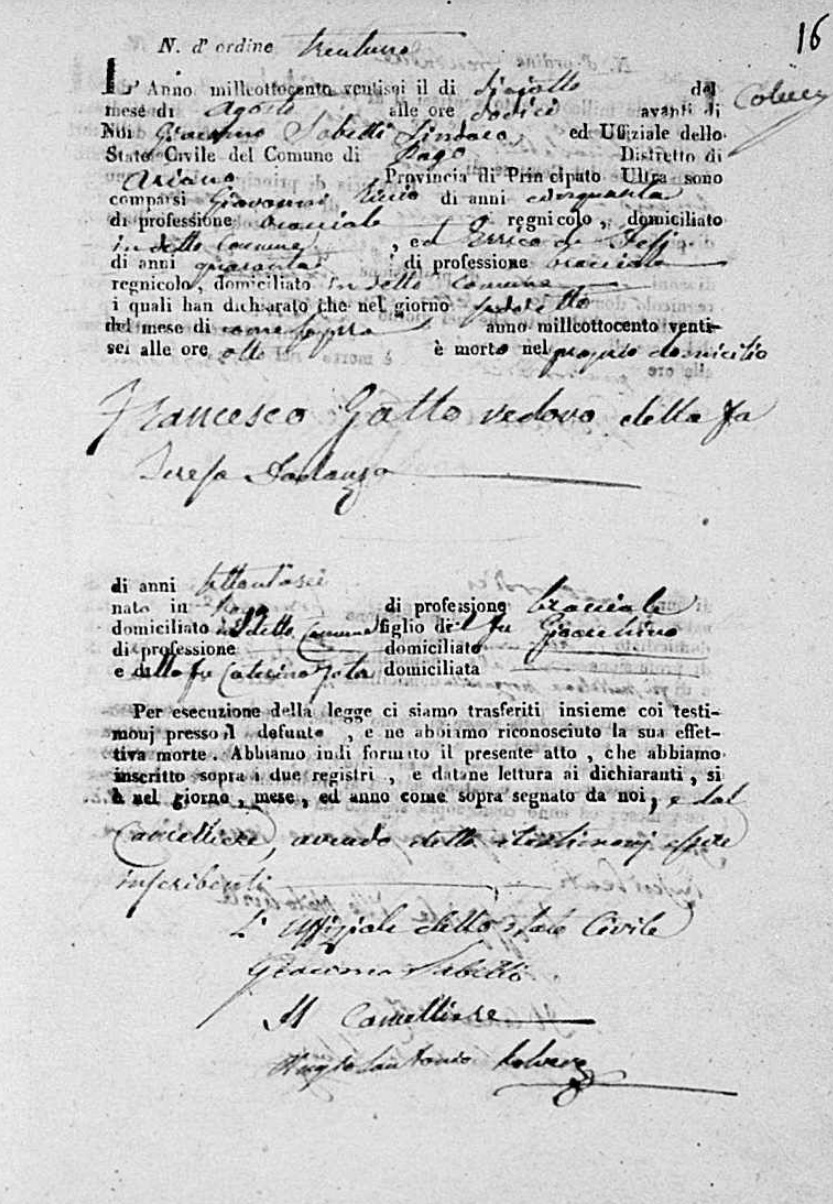 16
N. d' ordine trentuno
L'Anno millcottocento ventisei il di diciotto del
mese di Agosto alle ore dodici avanti di
Noi Giacomo Sabetti Sindaco, ed Uffiziale dello
Stato Civile del Comune di Pago Distretto di
Ariano Provincia di Principato Ultra sono
comparsi Giovanni di anni cinquanta
di professione bracciale regnicolo, domiciliato
in detto Comune, ed Errico de
di anni quaranta di professione bracciale
regnicolo, domiciliato in detto Comune
i quali han dichiarato che nel giorno sudetto
del mese di come sopra anno millcottocento venti-
sei alle ore otto è morto nel proprio domicilio
Francesco Gatto vedovo della fu
Teresa
di anni settantasei
nato in Pago di professione bracciale
domiciliato in detto Comune figlio del fu Gioacchino
di professione domiciliato
e della fu Caterina domiciliata
Per esecuzione della legge ci siamo trasferiti insieme coi testi-
monj presso il defunto, e ne abbiamo riconosciuto la sua effet-
tiva morte. Abbiamo indi formato il presente atto, che abbiamo
inscritto sopra i due registri, e datane lettura ai dichiaranti, si
è nel giorno, mese, ed anno come sopra segnato da noi, e dal
Cancelliere, avendo detto i testimonj essere
inscribenti
L' Uffiziale dello stato Civile
Giacomo Sabetti
Il Cancelliere